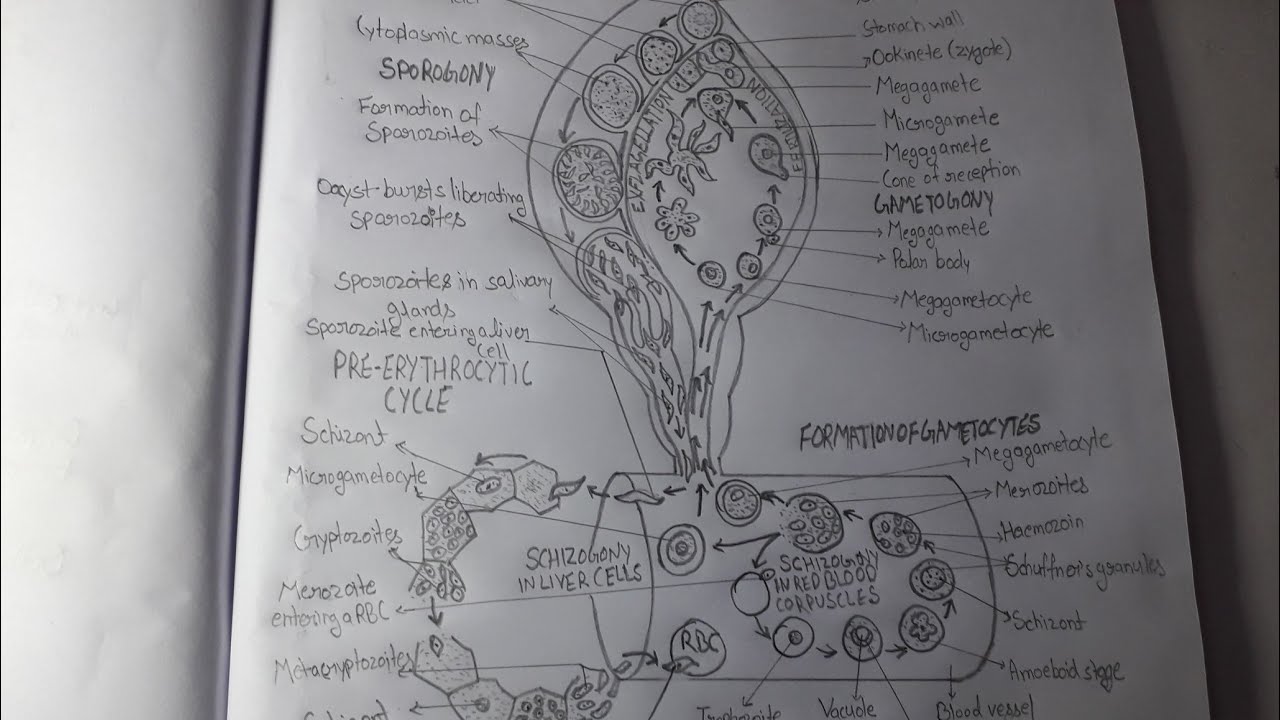 Cytoplasmic masses
SPOROGONY
Formation of
Sporozoites
Oocyst bursts liberating
Sporozoites
Sporozoites in salivary
glands
Sporozoite entering a liver
cell
PRE-ERYTHROCYTIC
CYCLE
Schizont
Microgametocyte
Cryptozoites
Merozoite
entering a RBC
Metacryptozoites
Schizont
EXFLAGELLATION
FERTILIZATION
Stomach wall
Ookinete (zygote)
Megagamete
Microgamete
Megagamete
Cone of reception
GAMETOGONY
Megagamete
Polar body
Megagametocyte
Microgametocyte
FORMATION OF GAMETOCYTES
Megagametocyte
Merozoites
Haemozoin
Schuffner's granules
Schizont
Amoeboid stage
SCHIZOGONY
IN LIVER CELLS
SCHIZOGONY
IN RED BLOOD
CORPUSCLES
RBC
Trophozoite
Vacuole
Blood vessel